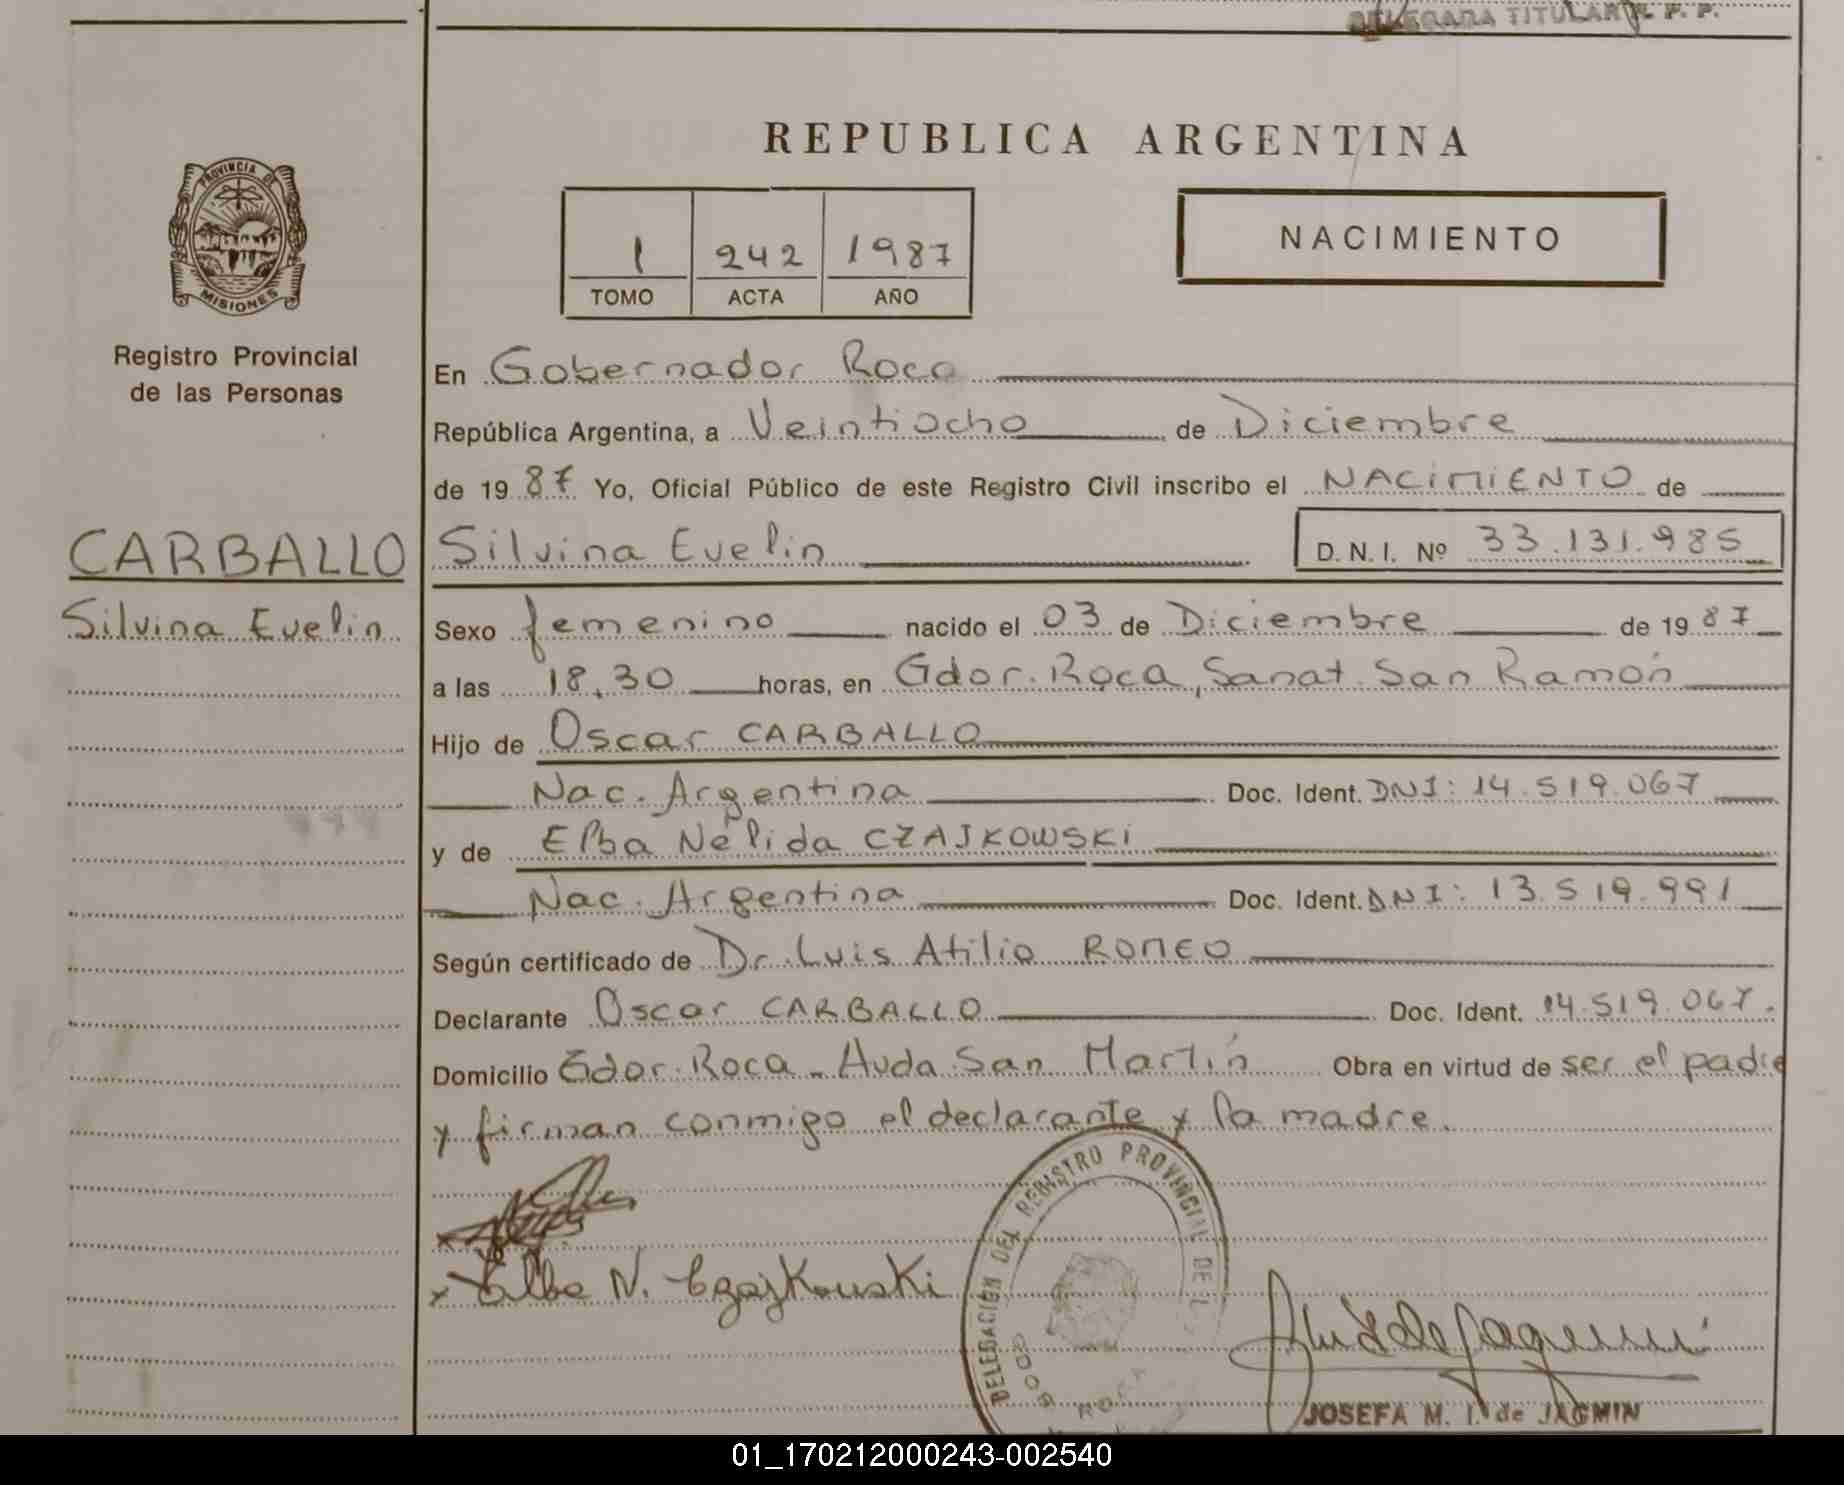 DELEGADA TITULAR R. P. P.
REPUBLICA ARGENTINA
PROVINCIA DE
MISIONES
1 242 1987
TOMO ACTA AÑO
NACIMIENTO
Registro Provincial
de las Personas
En Gobernador Roca
República Argentina, a Veintiocho de Diciembre
de 19 87 Yo, Oficial Público de este Registro Civil inscribo el NACIMIENTO de
CARBALLO Silvina Evelin D. N. I. Nº 33.131.985
Silvina Evelin
Sexo femenino nacido el 03 de Diciembre de 19 87
a las 18.30 horas, en Gdor. Roca, Sanat. San Ramón
Hijo de Oscar CARBALLO
Nac. Argentina Doc. Ident. DNI: 14.519.067
y de Elba Nélida CZAJKOWSKI
Nac. Argentina Doc. Ident. DNI: 13.519.991
Según certificado de Dr. Luis Atilio ROMEO
Declarante Oscar CARBALLO Doc. Ident. 14.519.067.
Domicilio Gdor. Roca - Avda San Martín Obra en virtud de ser el padre
y firman conmigo el declarante y la madre.
x Elba N. Czajkowski
DELEGACION DEL REGISTRO PROVINCIAL DE L
ROCA
JOSEFA M. I. de JAGMIN
01_170212000243-002540